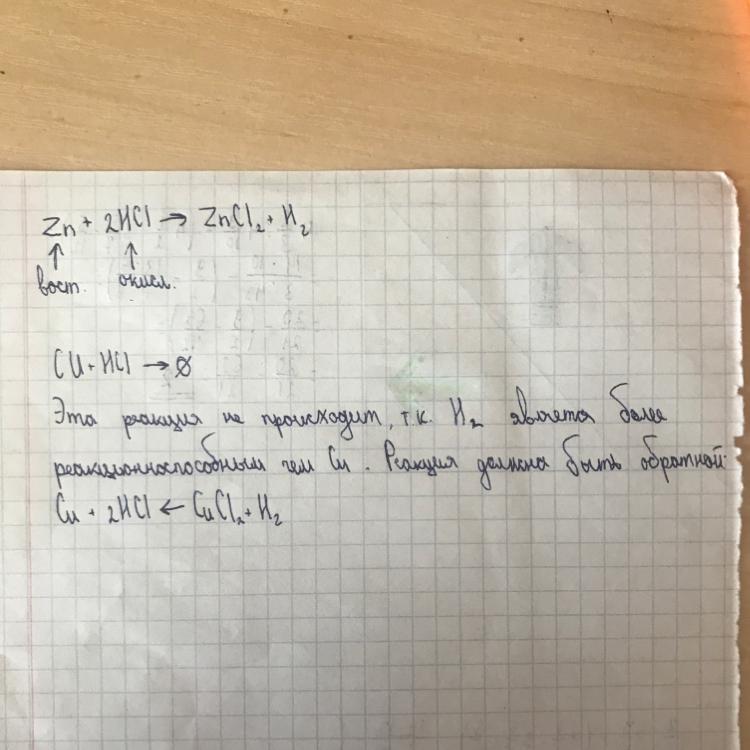 Zn + 2HCl → ZnCl₂ + H₂
↑ ↑
вост. окисл.
Cu + HCl → ∅
Эта реакция не происходит, т.к. H₂ является более
реакционноспособным чем Cu. Реакция должна быть обратной:
Cu + 2HCl ← CuCl₂ + H₂